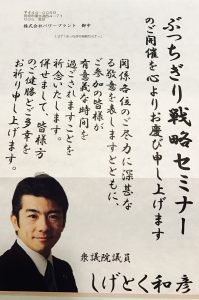 株式会社パワープラント 御中
ぶっちぎり戦略セミナー
のご開催を心よりお慶び申し上げます
関係各位のご尽力に深甚な
る敬意を表しますとともに、
ご参加の皆様が
有意義な時間を
過ごされますことを
祈念いたします。
併せまして、皆様方
のご健勝とご多幸を
お祈り申し上げます。
衆議院議員
しげとく和彦